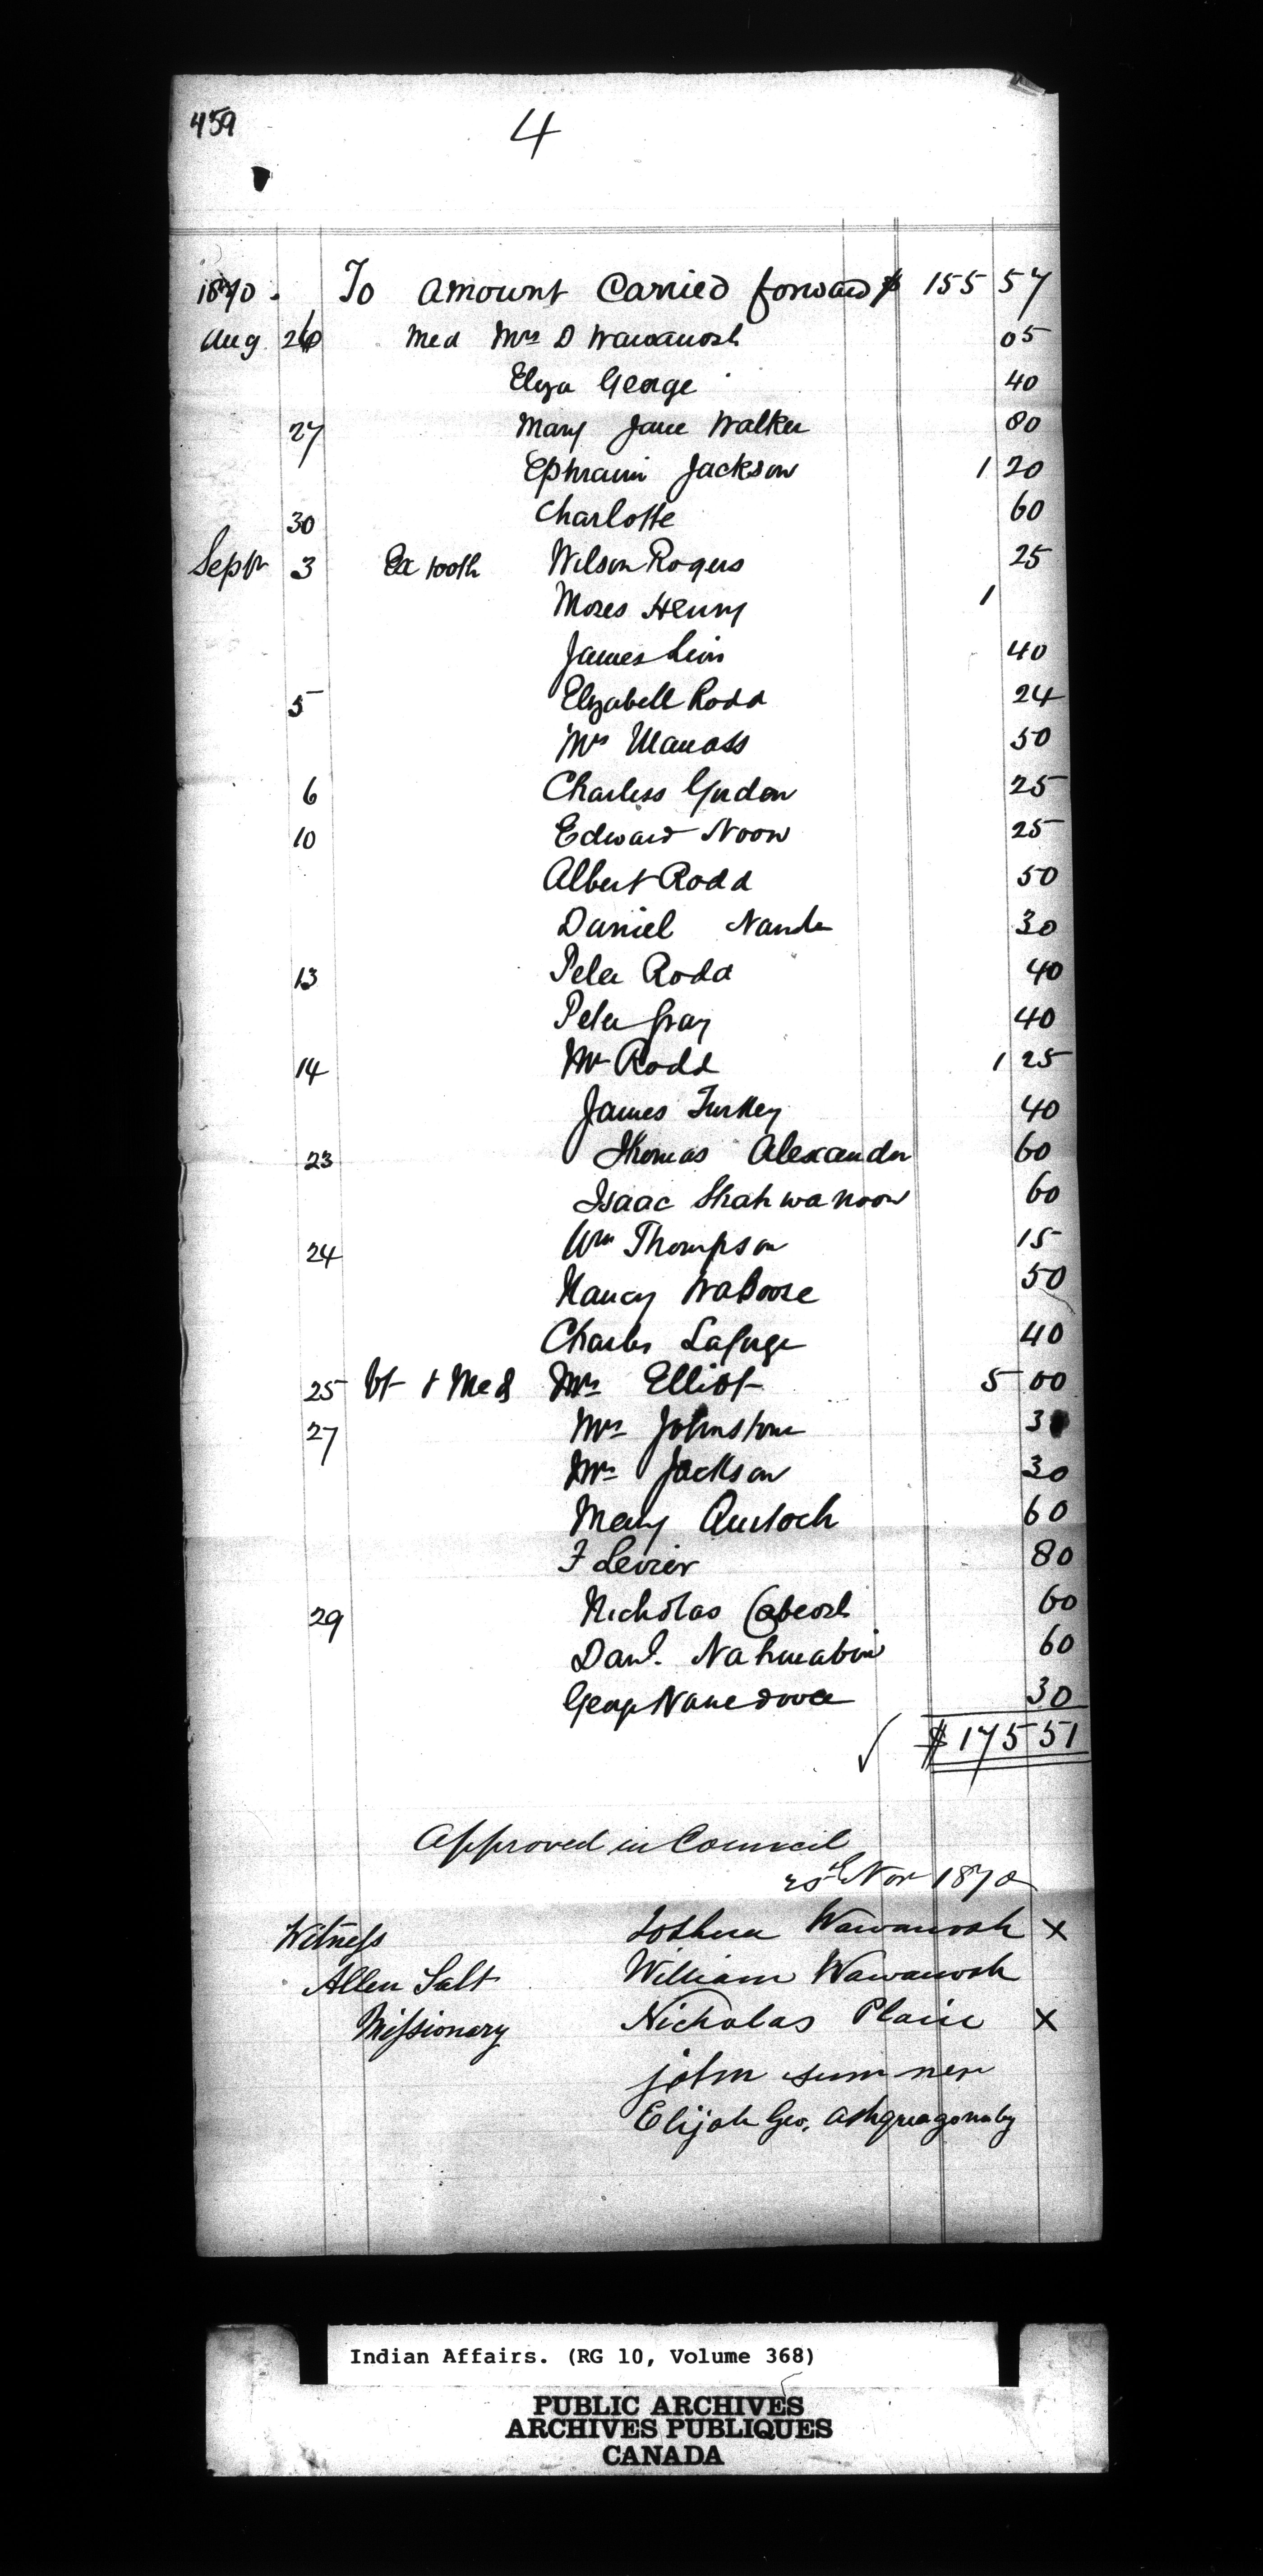 459
4
1870. To Amount Carried forward $ 155 57
Aug 26 Med Mrs D Wawanosh 05
Elyza George 40
27 Mary Jane Walker 80
Ephraim Jackson 1 20
30 Charlotte 60
Septr 3 Ex tooth Wilson Rogers 25
Moses Henry 1
James 40
5 Elyzabeth Rodd 24
Mrs Manass 50
6 Charless 25
10 Edward Noow 25
Albert Rodd 50
Daniel 30
13 Peter Rodd 40
Peter Gray 40
14 Mr Rodd 1 25
James Turkey 40
23 Thomas Alexander 60
Isaac Shahwanoow 60
24 Wm Thompson 15
Nancy Waboose 50
Charles 40
25 Vt & Med Mrs Elliot 5 00
27 Mrs Johnstone
Mrs Jackson 30
Mary 60
F Levier 80
29 Nicholas 60
Danl. Nahmabin 60
George 30
$ 175 51
Approved in Council
25th Nov 1870
Witness Joshua Wawanosh X
Allen Salt William Wawanosh
Missionary Nicholas Plain X
john sumner
Elijah Geo. Ashquagonaby
Indian Affairs. (RG 10, Volume 368)
PUBLIC ARCHIVES
ARCHIVES PUBLIQUES
CANADA